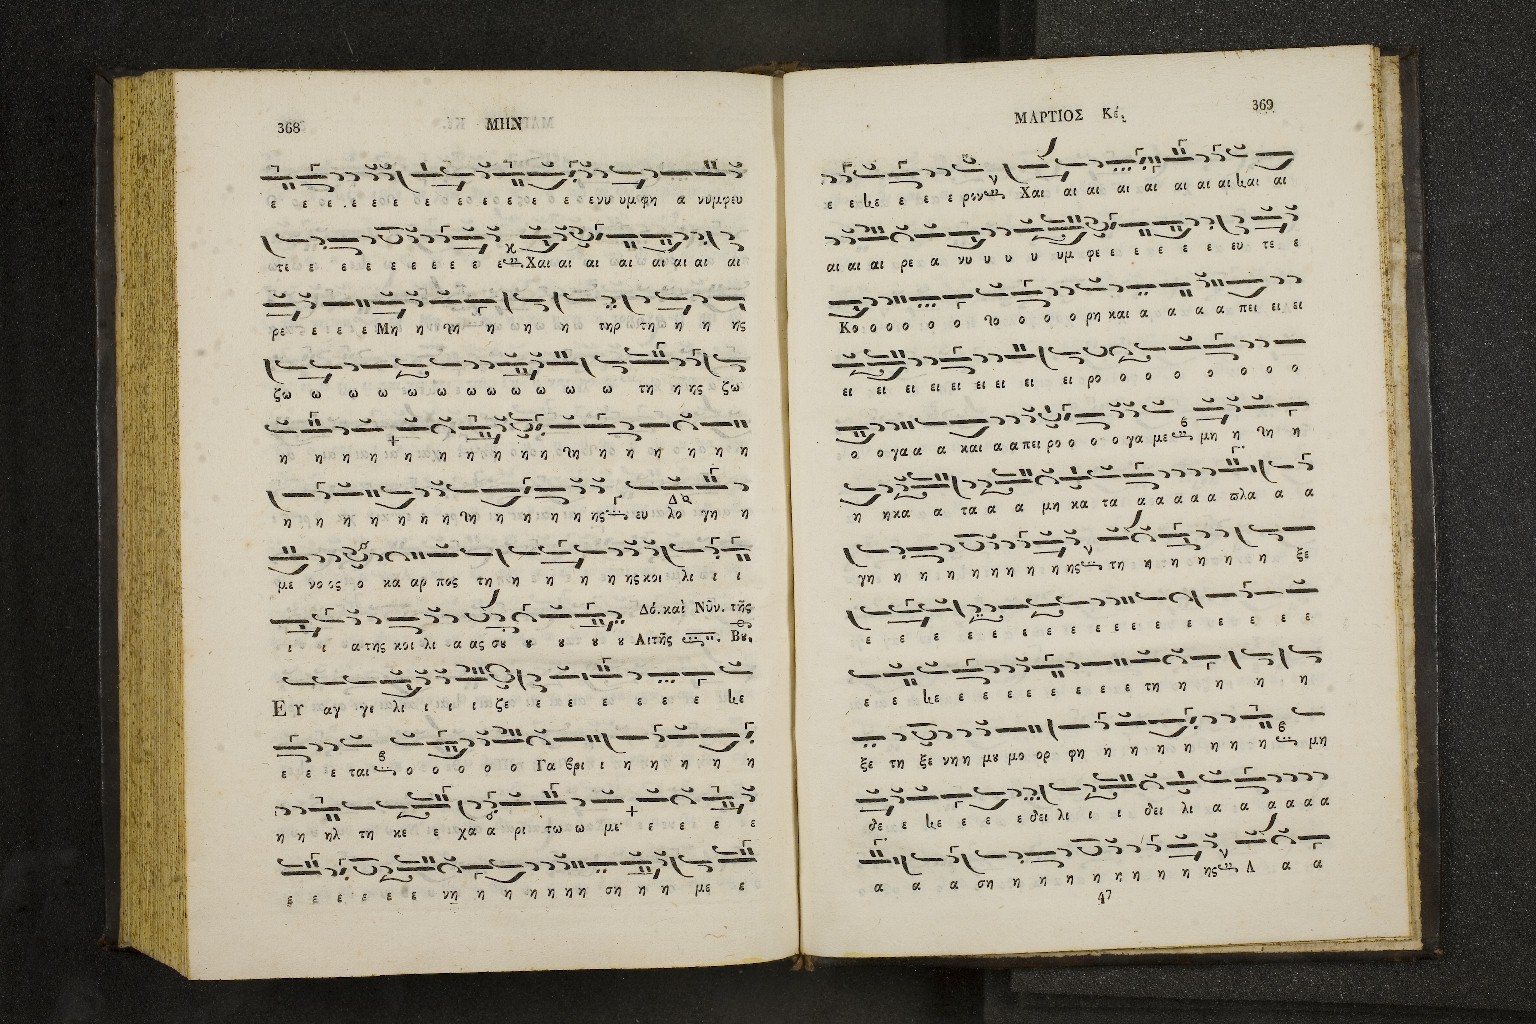 368 ΜΗΝ
ε ε ε ε ε ε ε ε ε ε ε ε ε ενυ υμφη α νυμφευ
τε ε ε ε ε ε ε ε ε ε Χαι αι αι αι αι αι αι αι
ρε ε ε ε Μη η η η η τηρ τη η η ης
ζω ω ω ω ω ω ω ω ω ω ω ω τη η ης ζω
η η η η η η η η η η η η η η η η
η η η η η η η η η η η η ης ευ λο γη η
με νο ος ο κα αρ πος τη η η η η ης κοι λι ι ι
Δό. καὶ Νῦν. τῆς
ι ι α της κοι λι α ας σȣ ȣ ȣ ȣ ȣ Αιτῆς Βȣ.
Ευ αγ γε λι ι ι ι ζε ε ε ε ε ε ε
ε ε ε ται ο ο ο ο ο Γα βρι ι η η η η η
η η ηλ τη κε ε χα α ρι τω ω με ε ε ε ε
ε ε ε ε ε ε νη η η η η η η ση η η με ε
ΜΑΡΤΙΟΣ Κέ. 369
ε ε ε ε ε ρον Χαι αι αι αι αι αι αι αι αι αι
αι αι αι ρε α νυ υ υ υ υμ φε ε ε ε ε ε ευ τε ε
Κο ο ο ο ο ο ο ο ο ρη και α α α α πει ει ει
ει ει ει ει ει ει ει ει ει ρο ο ο ο ο ο ο ο
ο ο γα α α και α α πει ρο ο ο ο γα με μη η η
η η κα α τα α α μη κα τα α α α α α πλα α α
γη η η η η η η η ης τη η η η η η ξε
ε ε ε ε ε ε ε ε ε ε ε ε ε ε
ε ε ε ε ε ε ε ε ε ε τη η η η η
ξε τη ξε νη η μȣ μο ορ φη η η η η η η η μη
θε ε ε ε ε θει λι ι ι θει λι α α α α α α
α α α ση η η η η η η η η ης Α α α
47